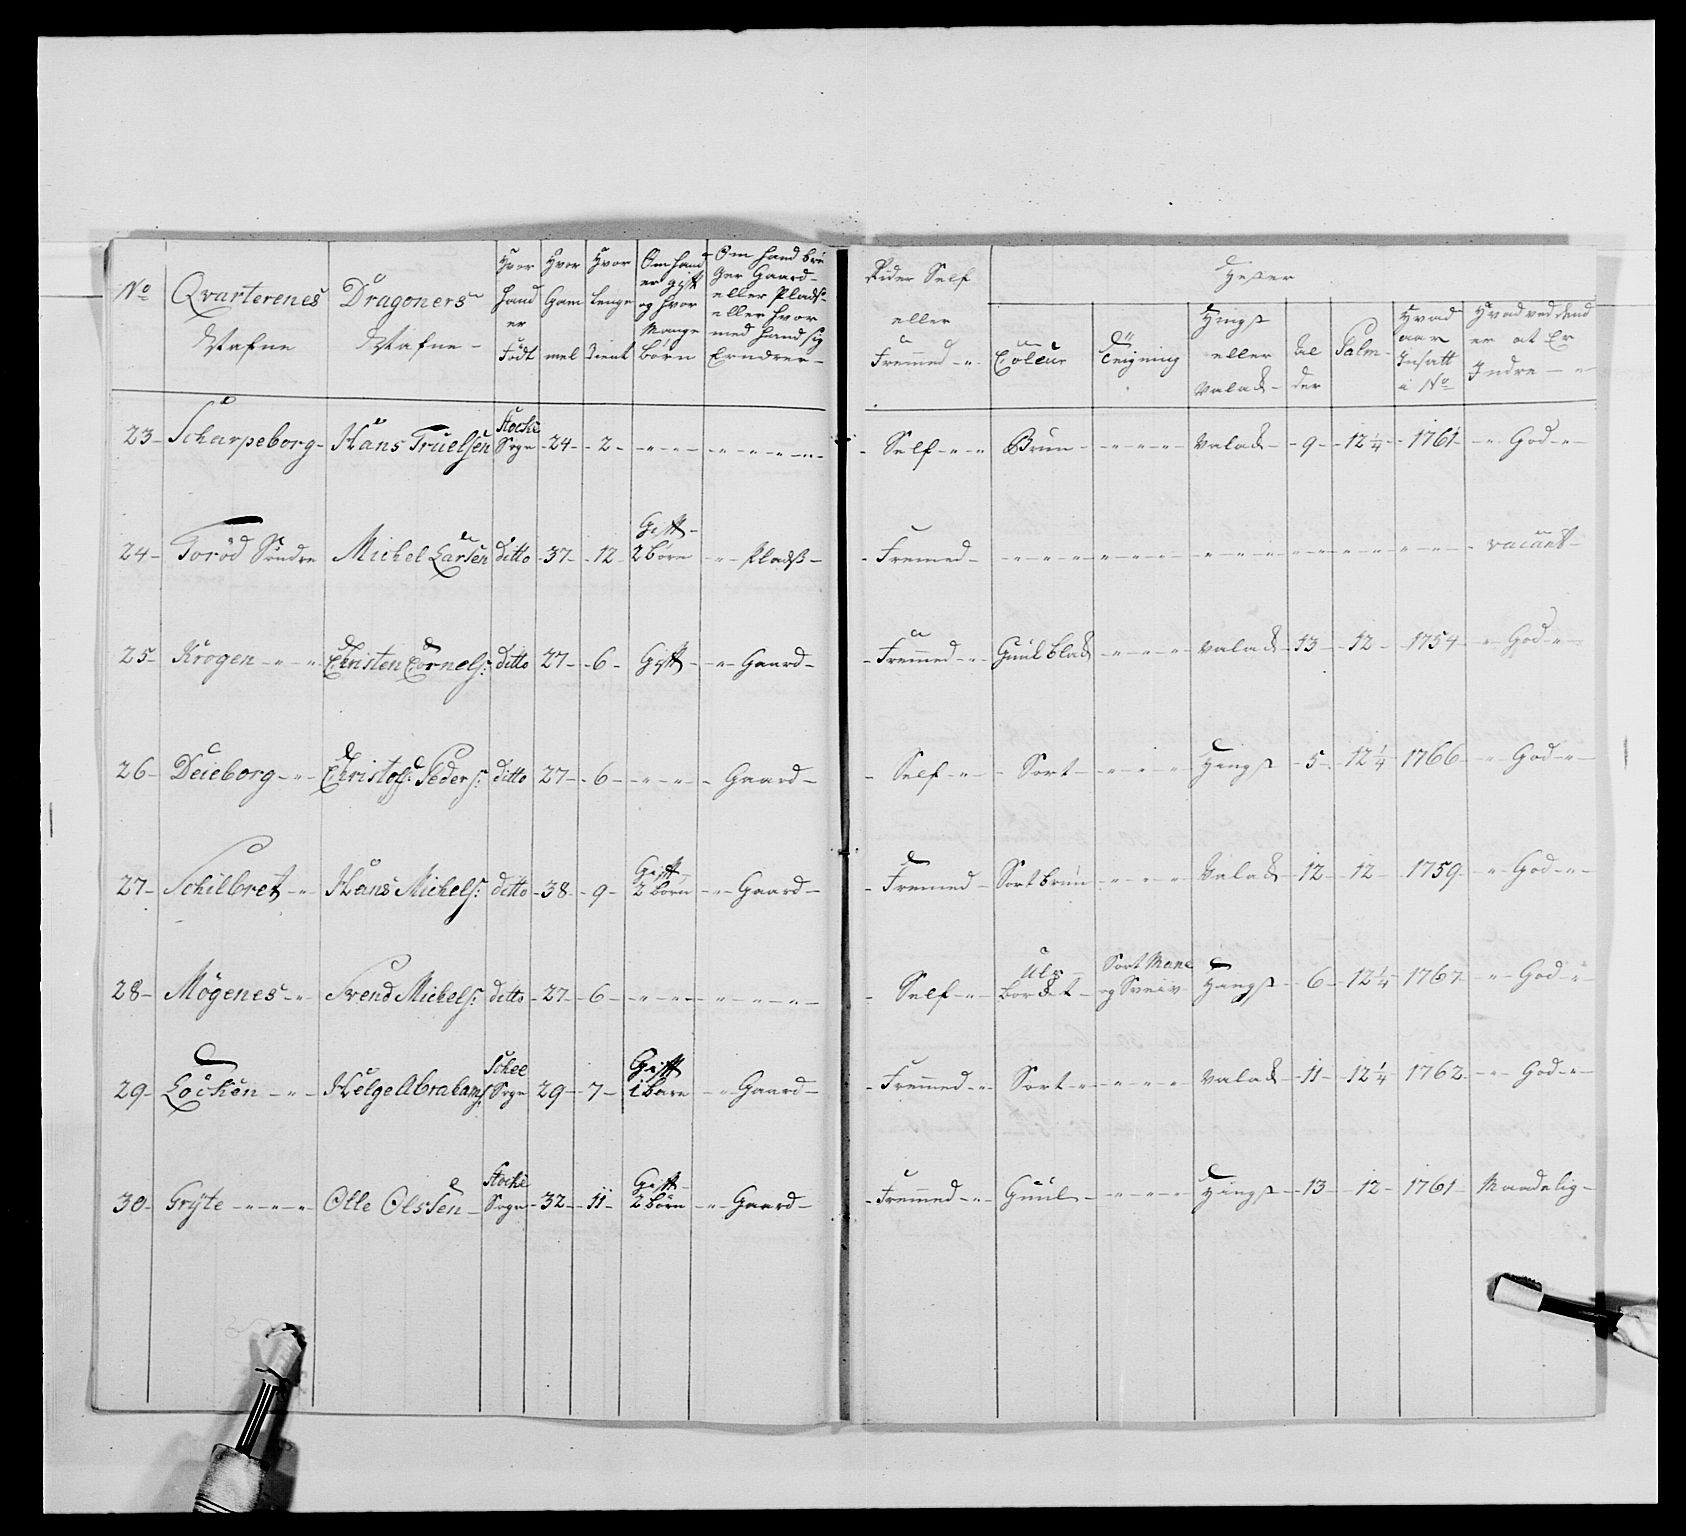 No Qvarterenes Nafne Dragoners Nafne Hvor hand er Født Hvor Gammel Hvor lenge tient Om hand er gift og hvor mange børn Om hand bruger Gaard eller Plads eller hvor med hand sig Ernærer
Rider Self eller Fremmed Hester
Couleur Teigning Hingst eller Valack Alder Palm Hvad aar Insatt i No Hvad ved dend er at Erindre
23 Scharpeborg Hans Truelsen Stocke Sogn 24 2 Self Brun Valack 9 12 1/4 1761 God
24 Torød Søndre Michel Larsen ditto 37 12 Gift 2 børn Pladß Fremmed vacant
25 Krogen Christen Cornels: ditto 27 6 Gift Gaard Fremmed Guul black Valack 13 12 1754 God
26 Deieborg Christoff: Peders: ditto 27 6 Gaard Self Sort Hingst 5 12 1/4 1766 God
27 Schilbret Hans Michels: ditto 38 9 Gift 2 børn Gaard Fremmed Sortbrun Valack 12 12 1759 God
28 Mögenes Svend Michels: ditto 27 6 Self Ulv Sort Mane og Hingst 6 12 1/4 1767 God
29 Löcken Helge Abrahams: Schee Sogn 29 7 Gift 1 barn Gaard Fremmed Sort Valack 11 12 1/4 1762 God
30 Gryte Olle Olssen Stocke Sogn 32 11 Gift 2 børn Gaard Fremmed Guul Hingst 13 12 1761 Maadelig